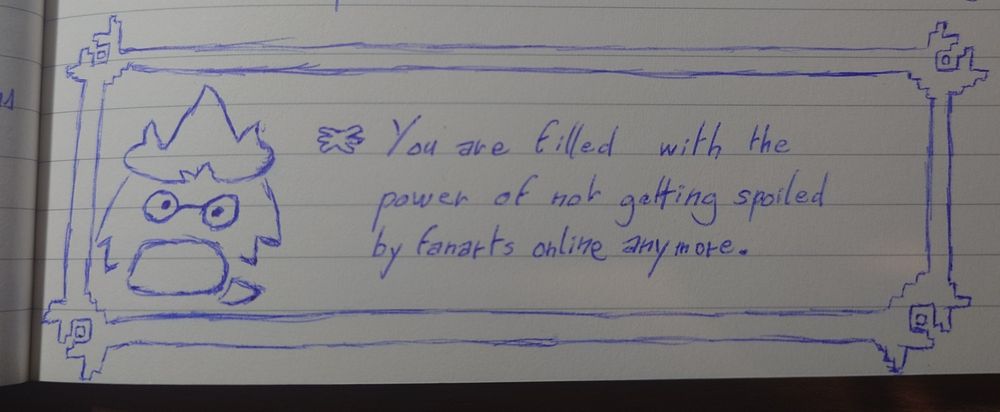 You are filled with the
power of not getting spoiled
by fanarts online anymore.